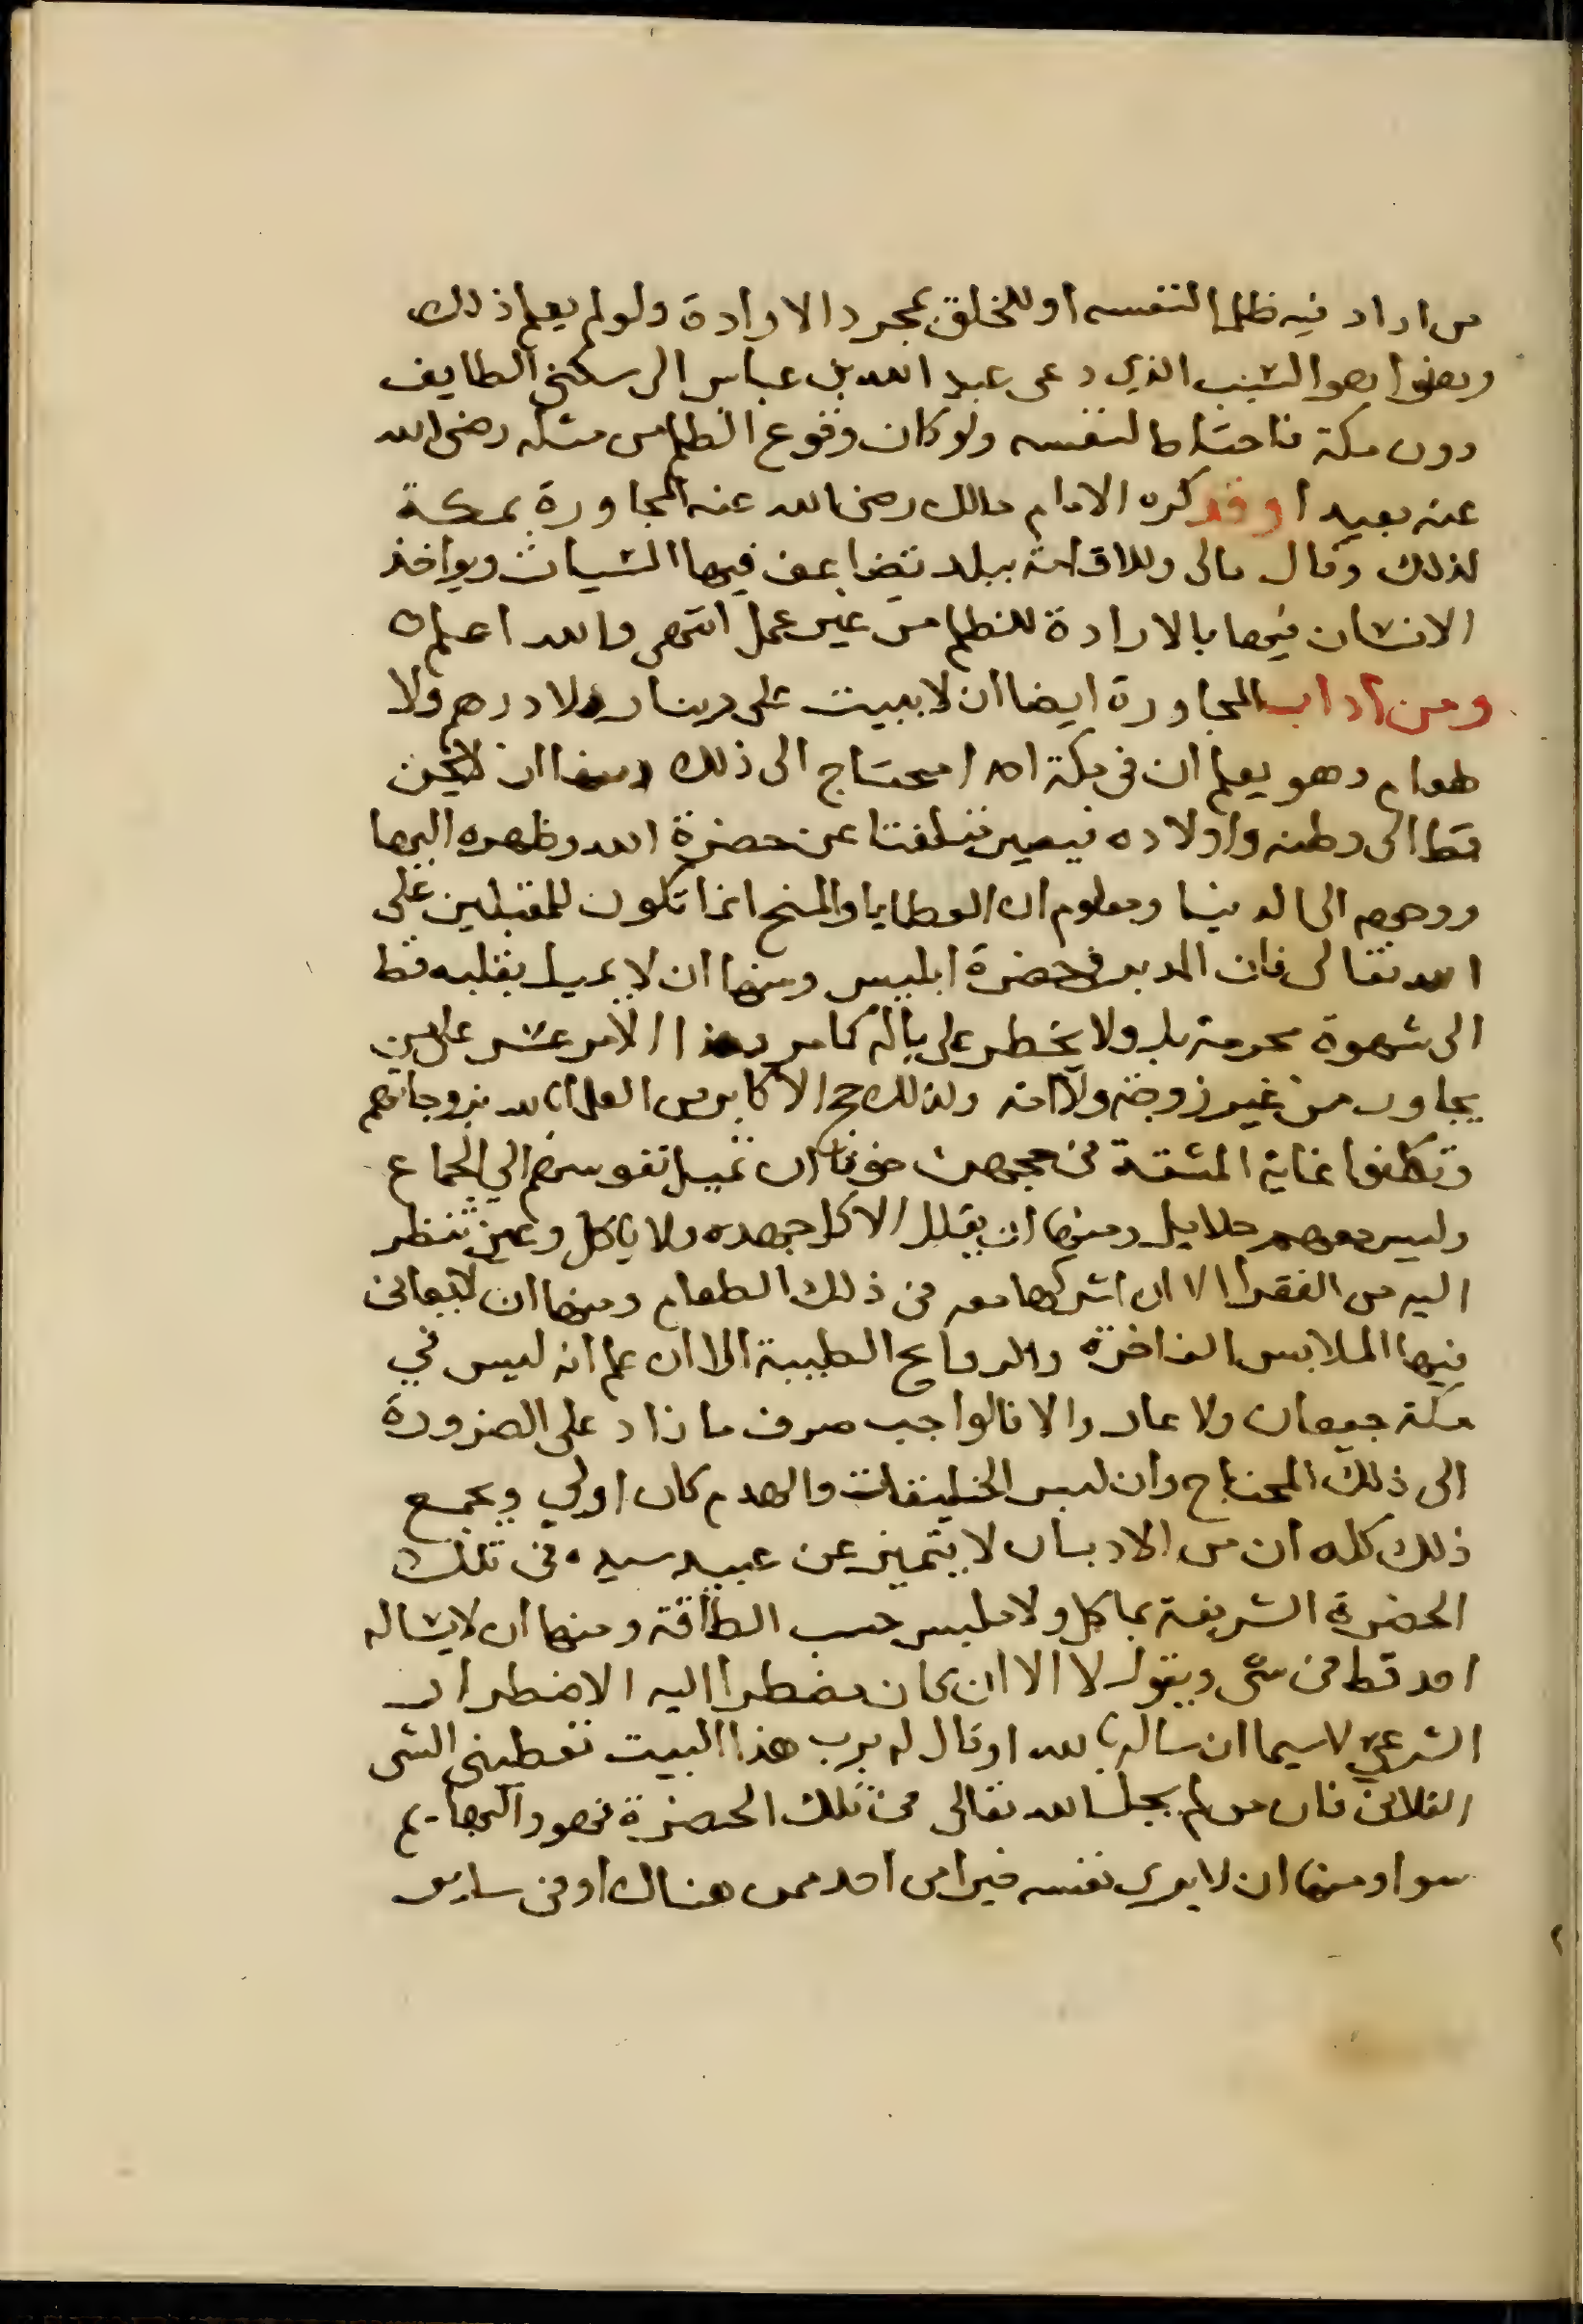 من اراد فيه ظلما لنفسه او للخلق بمجرد الارادة ولولم يعلم ذلك
وهذا هو السبب الذي دعى عبد الله بن عباس الى سكنى الطايف
دون مكة فاحتاط لنفسه ولو كان وقوع الظلم من مثله رضى الله
عنه بعيدا وقد كره الامام مالك رضى الله عنه المجاورة بمكة
لذلك وقال مالى وللاقامة ببلد تتضاعف فيها السيات ويواخذ
الانسان فيها بالارادة للظلم من غير عمل انتهى والله اعلم
ومن اداب المجاورة ايضا ان لا يبيت على دينار ولا درهم ولا
طعام وهو يعلم ان فى مكة احدا محتاج الى ذلك ومنها ان لا يحن
قط الى وطنه واولاده فيصير متلفتا عن حضرة الله وظهره اليها
ووجهه الى الدنيا ومعلوم ان العطايا والمنح انما تكون للمقبلين على
الله تعالى فان المدبر فى حضرة ابليس ومنها ان لا يميل بقلبه قط
الى شهوة محرمة بل ولا يخطر على باله كما مر وهذا الامر عسر على من
يجاور من غير زوجة ولا امة ولذلك حج الاكابر من العلما بالله بزوجاتهم
وتكلفوا غاية المشقة فى حجهن خوفا ان تميل نفوسهم الي الجماع
وليس معهم حلايل ومنها ان يقلل الاكل جهده ولا ياكل وعين تنظر
اليه من الفقرا الا ان اشركها معه فى ذلك الطعام ومنها ان لا يعانى
فيها الملابس الفاخرة والروايح الطيبة الا ان علم انه ليس في
مكة جيعان ولا عار والا فالواجب صرف ما زاد على الضرورة
الى ذلك المحتاج وان لبس الخليقات والهدم كان اولي ويجمع
ذلك كله ان من الادب ان لا يتميز عن عبيد سيده فى تلك
الحضرة الشريفة بماكل ولا ملبس حسب الطاقة ومنها ان لا يساله
احد قط فى شى ويقول لا الا ان كان مضطرا اليه الاضطرار
الشرعي لاسيما ان ساله بالله او قال له برب هذا البيت تعطينى الشى
الفلانى فان من لم يجل الله تعالى فى تلك الحضرة فهو والبهايم
سوا ومنها ان لا يرى نفسه خيرا من احد ممن هناك او فى ساير